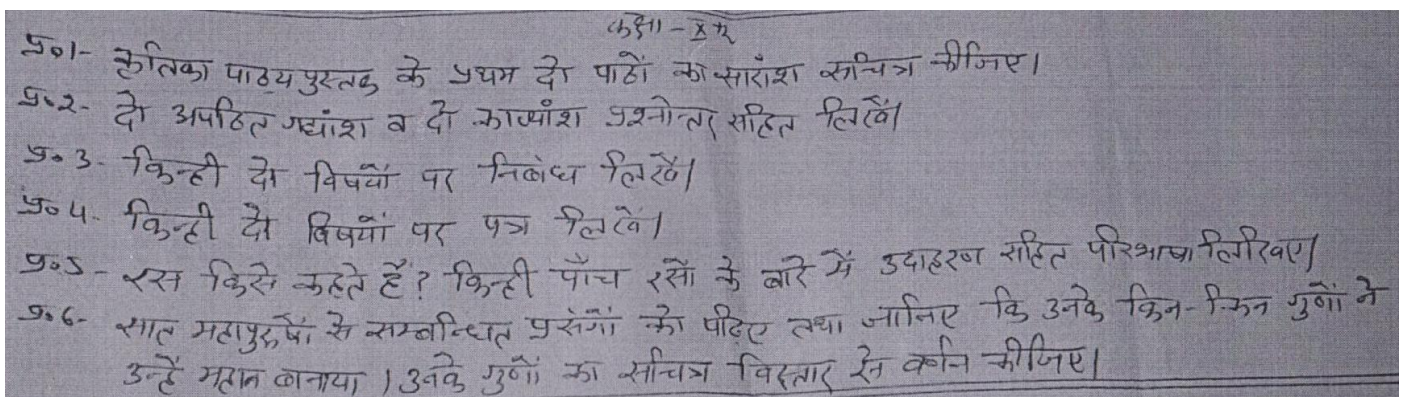 कक्षा - X th
प्र०1- कृतिका पाठ्यपुस्तक के प्रथम दो पाठों का सारांश सचित्र कीजिए।
प्र०2- दो अपठित गद्यांश व दो काव्यांश प्रश्नोत्तर सहित लिखें।
प्र०3- किन्ही दो विषयों पर निबंध लिखें।
प्र०4- किन्ही दो विषयों पर पत्र लिखें।
प्र०5- रस किसे कहते हैं? किन्ही पाँच रसों के बारे में उदाहरण सहित परिभाषा लिखिए।
प्र०6- सात महापुरुषों से सम्बन्धित प्रसंगों को पढिए तथा जानिए कि उनके किन-किन गुणों ने
उन्हें महान बनाया। उनके गुणों का सचित्र विस्तार से वर्णन कीजिए।